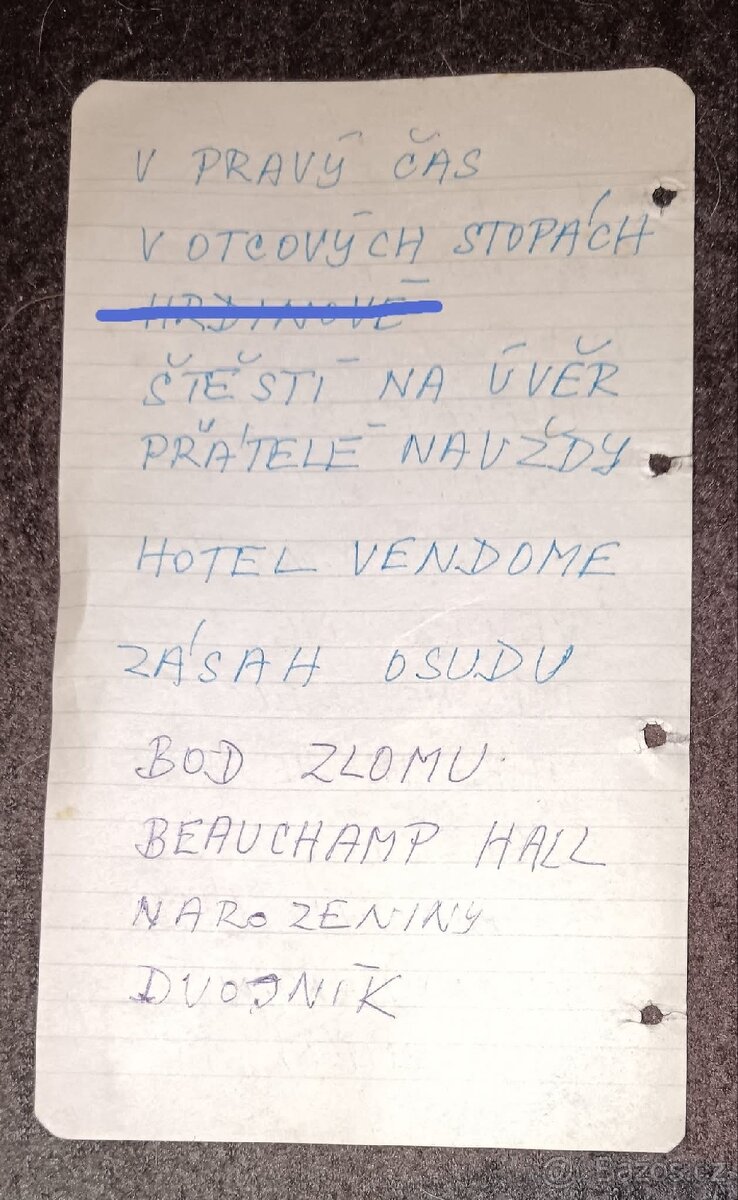 V PRAVÝ ČAS
V OTCOVÝCH STOPÁCH
HRDINOVÉ
ŠTĚSTÍ NA ÚVĚR
PŘÁTELÉ NAVŽDY
HOTEL VENDOME
ZÁSAH OSUDU
BOD ZLOMU
BEAUCHAMP HALL
NAROZENINY
DVOJNÍK
Bazos.cz